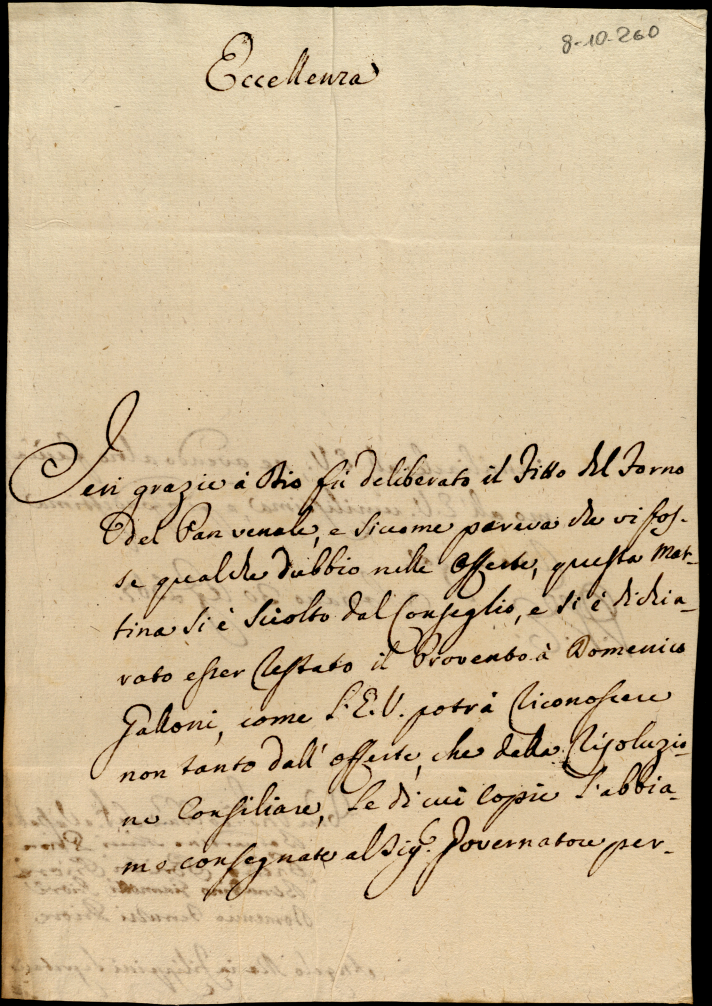 8-10-260
Eccellenza
Ieri grazie à Dio fù deliberato il Fitto del Forno
del Pan venale, e siccome pareva che vi fos-
se qualche dubbio nelle offerte, questa mat-
tina si è sciolto dal Conseglio, e si è dichia-
rato esser restato il Provento à Domenico
Galloni, come l'E.V. potrà riconoscere
non tanto dall'offerte, che dalla risoluzio-
ne Consiliare, le di cui copie l'abbia-
mo consegnate al Sig.r Governatore per-